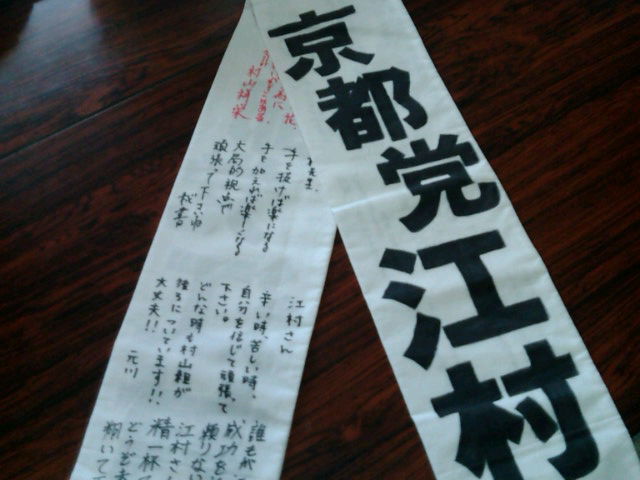 京都党江村
村山祥栄
手を抜けば楽になる
手を加えれば楽しくなる
大局的視点で
頑張って下さいね
江村さん
辛い時、苦しい時、
自分を信じて頑張って
下さい。
どんな時も村山組が
後ろについています!!
大丈夫!! 元川
誰もが
成功を
頼りない
江村さん
精一杯
どうぞ
翔いて